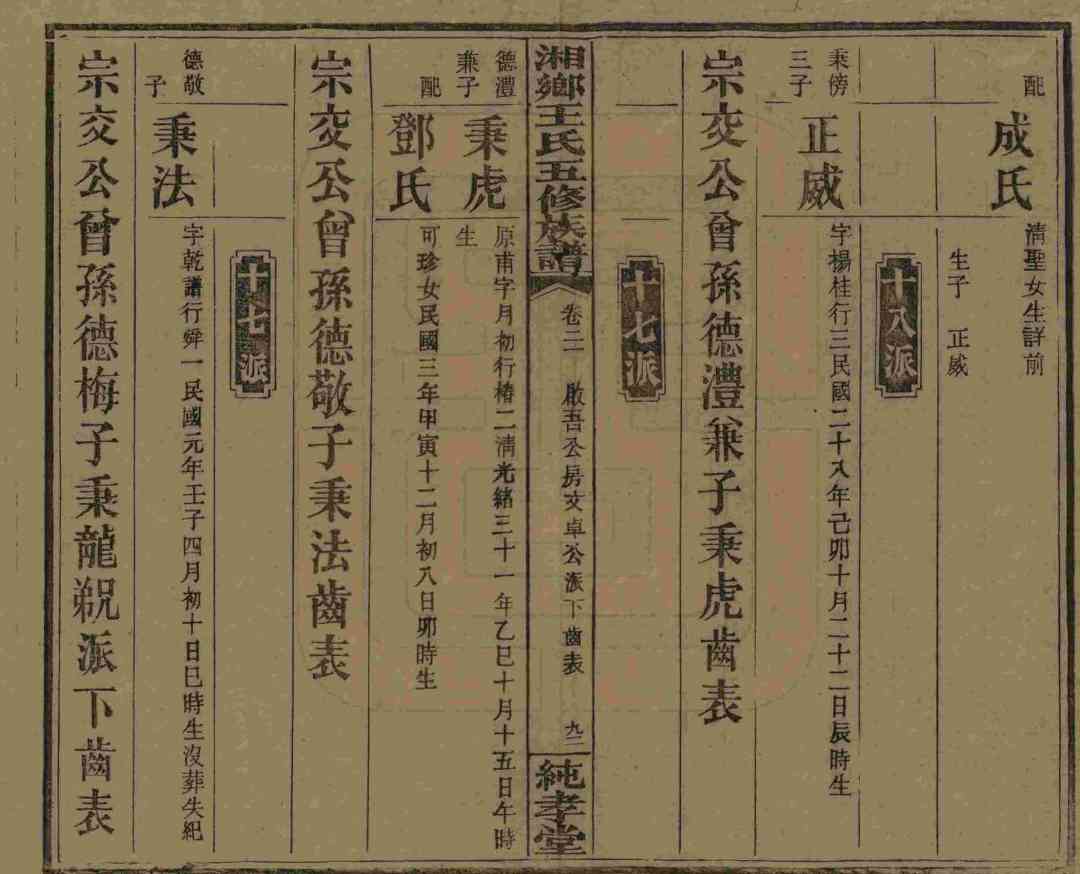 配
成氏
淸聖女生詳前
生子　正威
十八派
秉傍三子
正威
字楊桂行三民國二十八年己卯十月二十二日辰時生
宗交公曾孫德澧兼子秉虎齒表
十七派
湘鄉王氏五修族譜
卷二　啟吾公房文卓公派下齒表
九二
純孝堂
德澧兼子
秉虎
原甫字月初行椿二淸光緒三十一年乙巳十月十五日午時生
配
鄧氏
可珍女民國三年甲寅十二月初八日卯時生
宗交公曾孫德敬子秉法齒表
十七派
德敬子
秉法
字乾譜行舜一民國元年壬子四月初十日巳時生沒葬失紀
宗交公曾孫德梅子秉龍派下齒表